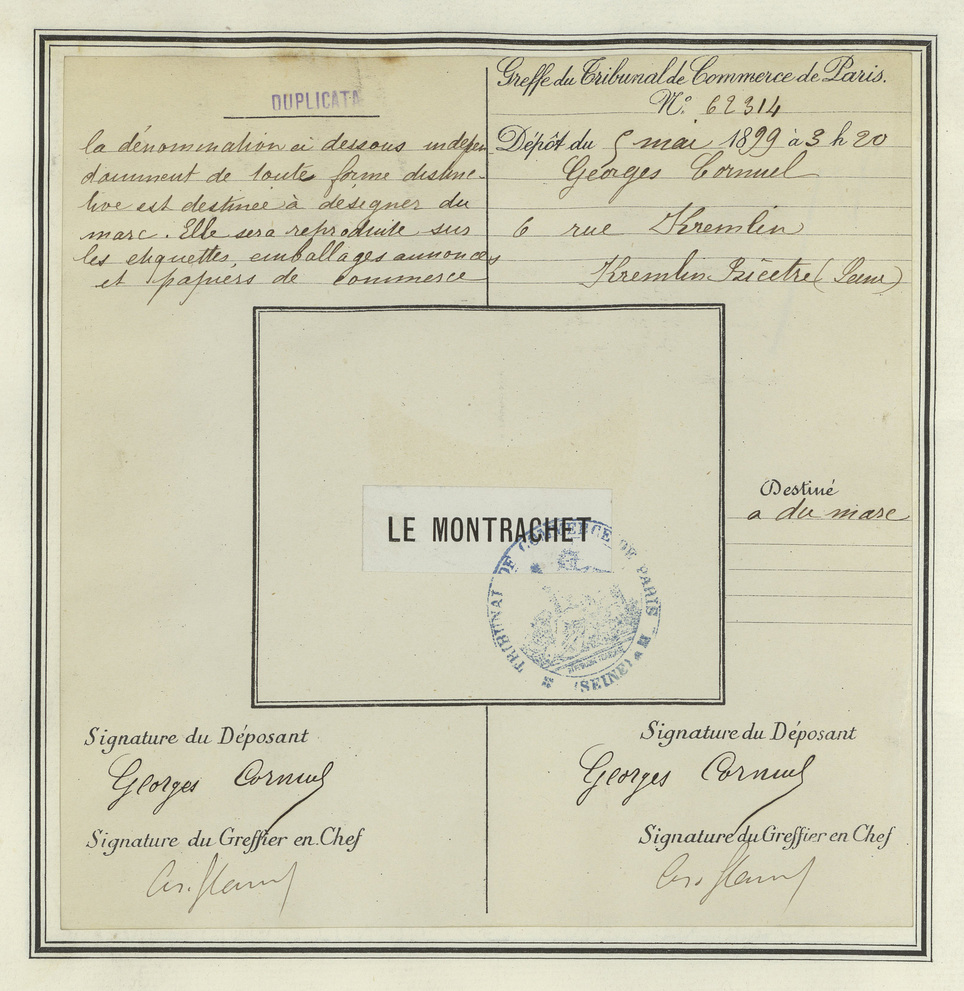 DUPLICATA
la dénomination ci dessous indépen
damment de toute forme distinc-
tive est destinée à désigner du
marc. Elle sera reproduite sur
les etiquettes, emballages annonces
et papiers de commerce
Greffe du Tribunal de Commerce de Paris.
No. 62314
Dépôt du 5 mai 1899 à 3 h 20
Georges Cornuel
6 rue Kremlin
Kremlin Bicetre (Seine)
LE MONTRACHET
TRIBUNAL DE COMMERCE DE PARIS
(SEINE)
Destiné
a du marc
Signature du Déposant
Georges Cornuel
Signature du Greffier en Chef
Signature du Déposant
Georges Cornuel
Signature du Greffier en Chef